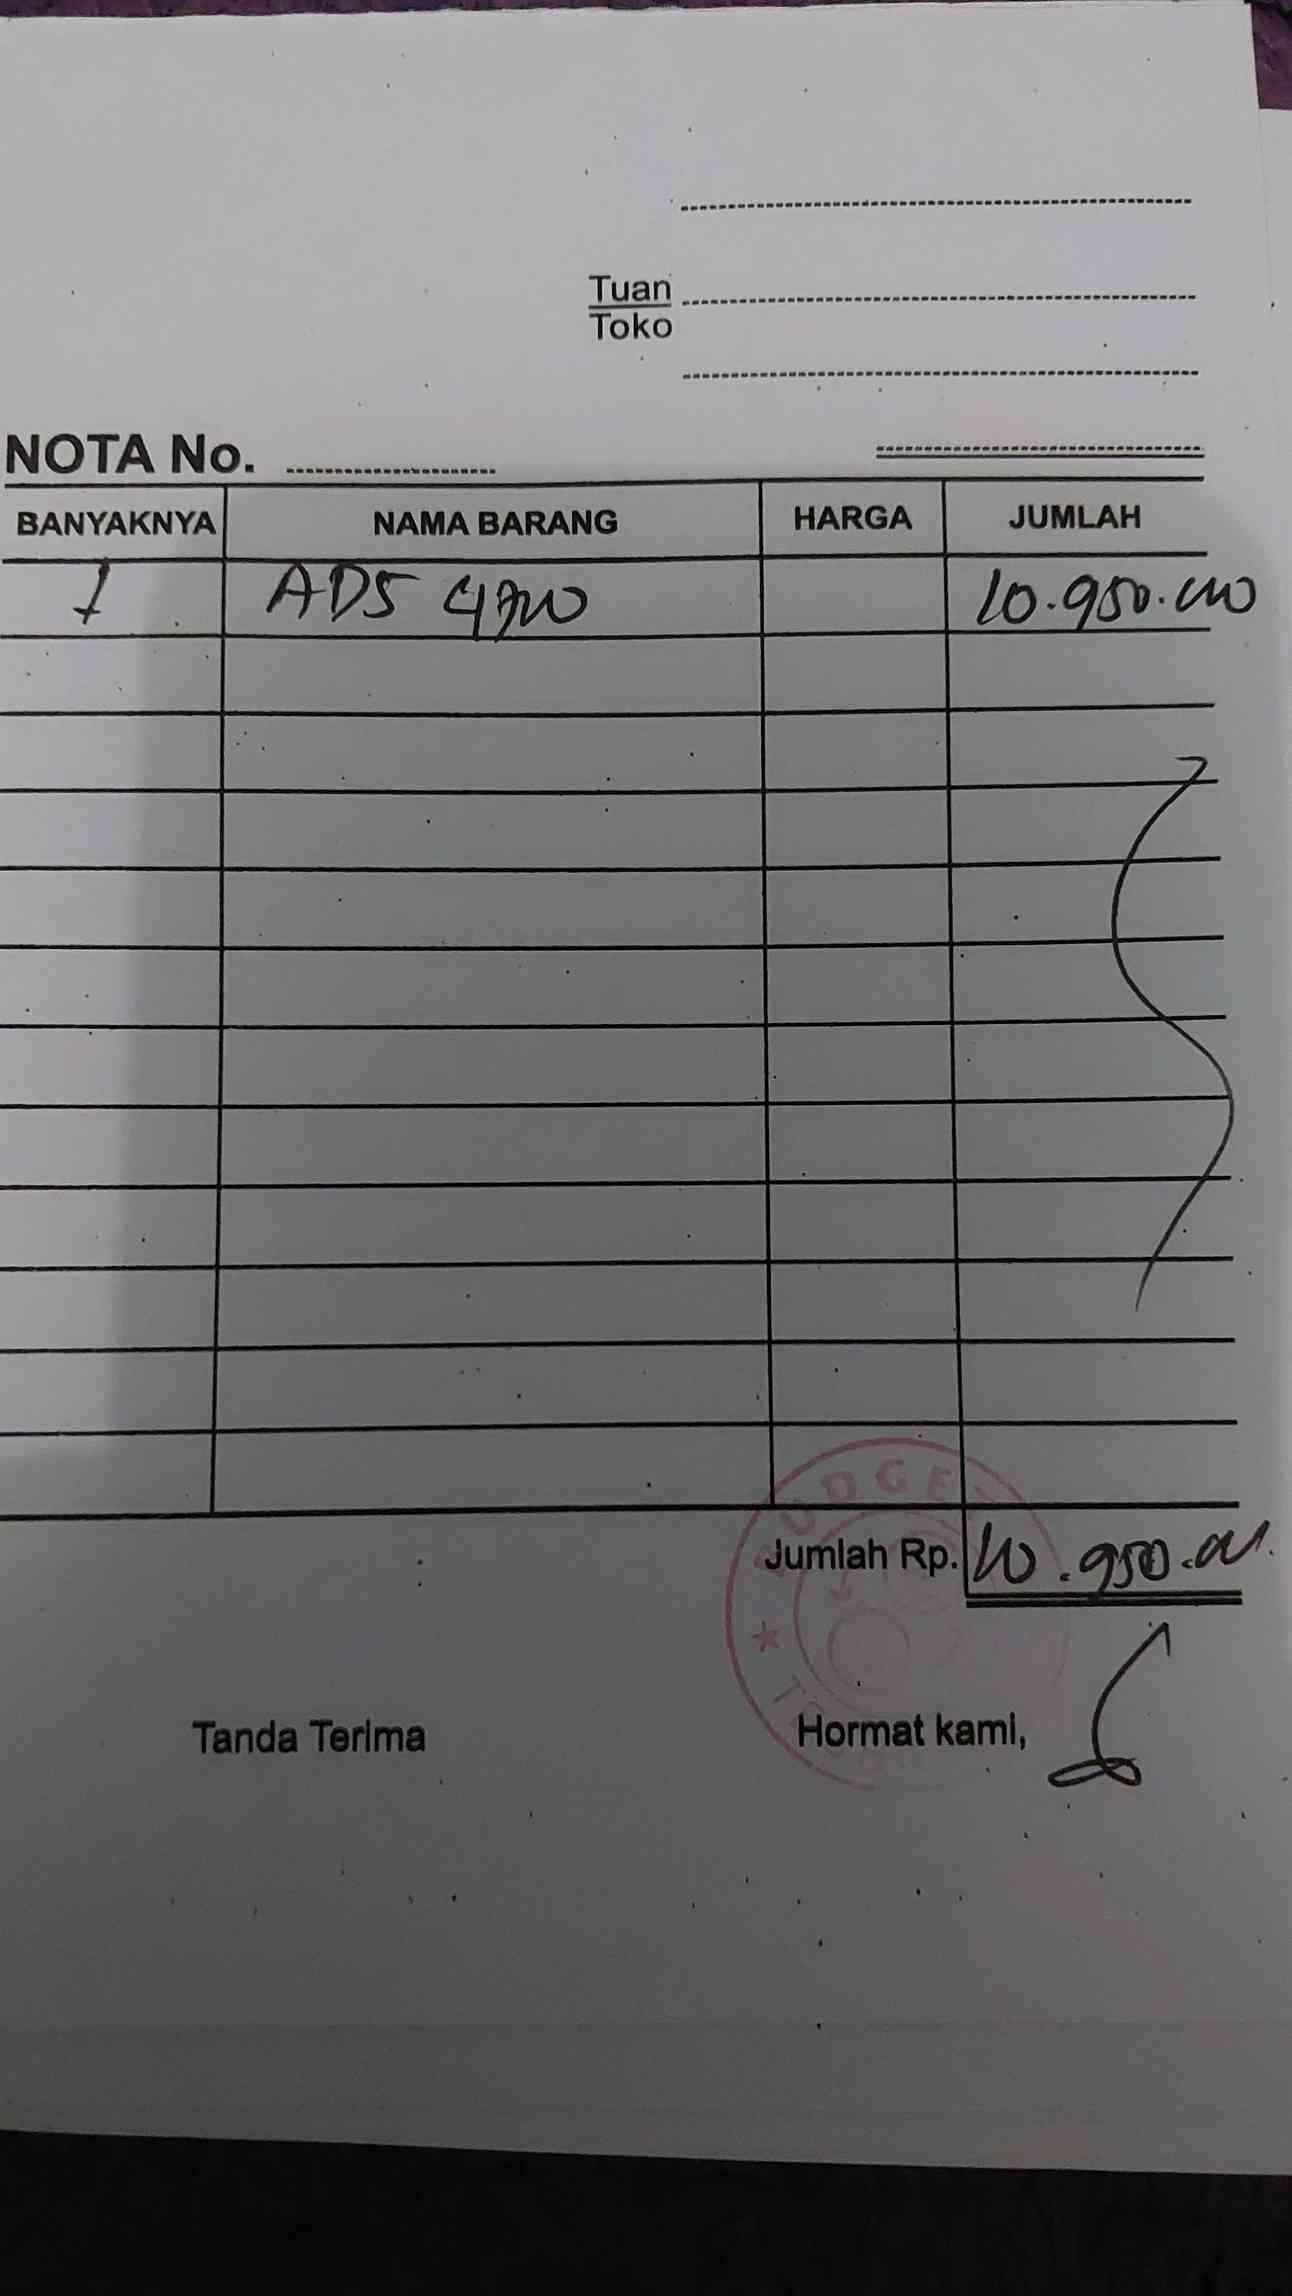 Tuan
Toko
NOTA No.
BANYAKNYA NAMA BARANG HARGA JUMLAH
1 ADS 4700 10.950.000
Jumlah Rp. 10.950.000
Tanda Terima Hormat kami,